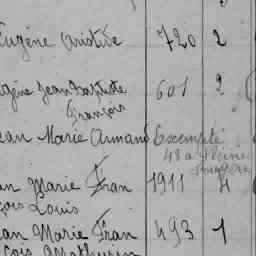 Eugène Aristide 720 2
gène Jean Baptiste 601 2
François
ean Marie Armand Exempté
48 a
an Marie Fran 1911 4
çois Louis
ean Marie Fran 493 1
çois Mathurin